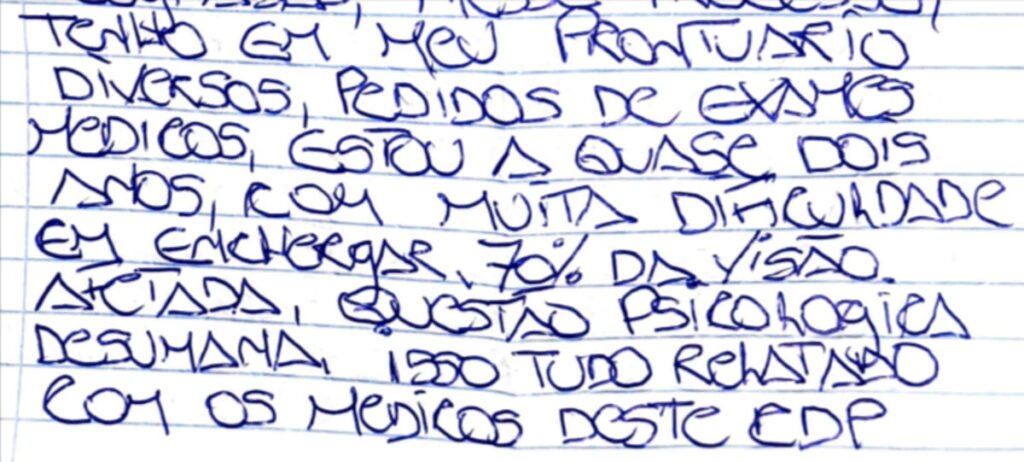 TENHO EM MEU PRONTUÁRIO
DIVERSOS, PEDIDOS DE EXAMES
MEDICOS, ESTOU A QUASE DOIS
ANOS, COM MUITA DIFICULDADE
EM ENCHERGAR, 70% DA VISÃO.
AFETADA, QUESTÃO PSICOLOGICA
DESUMANA, ISSO TUDO RELATADO
COM OS MEDICOS DESTE CDP